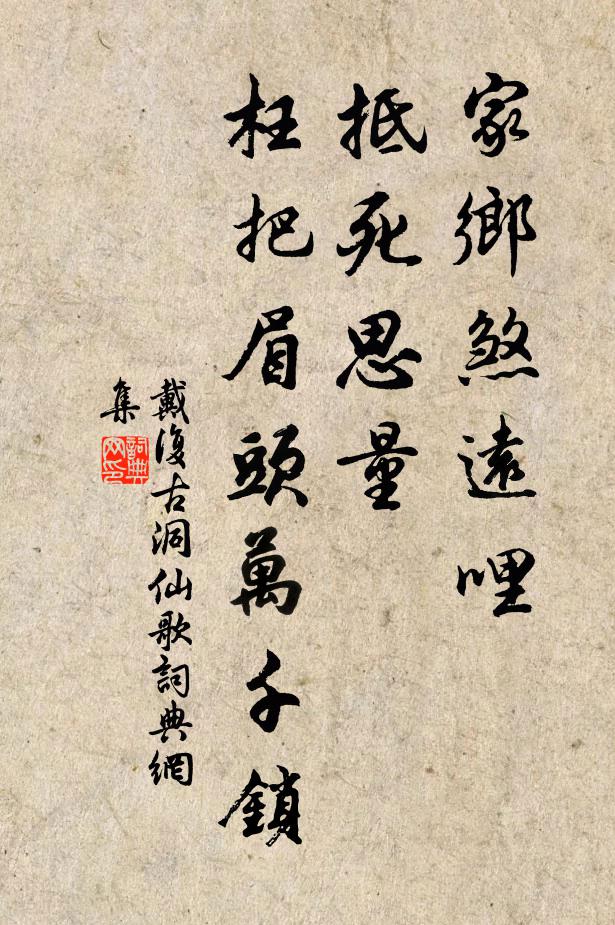 家鄉煞遠哩
抵死思量
枉把眉頭萬千鎖
戴復古洞仙歌詞典網
集
詞典
网印